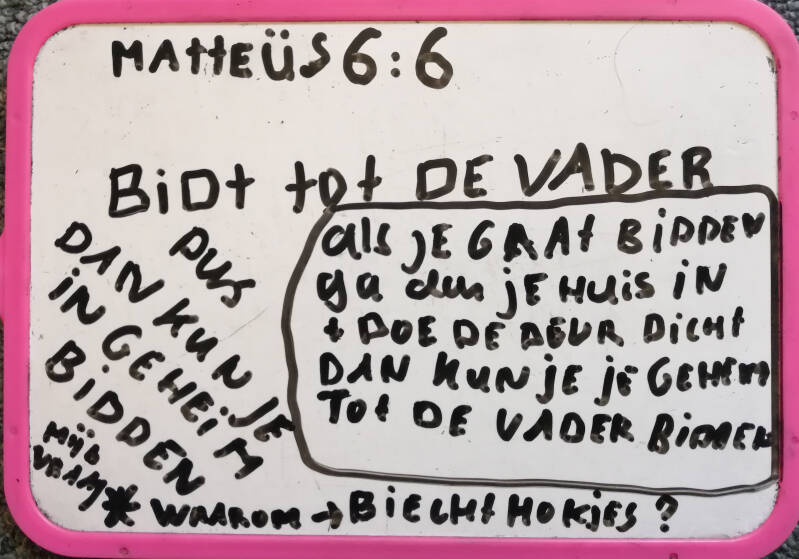 MAttEÜS 6:6
BiDt tot DE VADER
als JE GAAt BiDDEN
ga dan JE HUIS IN
+ DOE DE DEUR DICHt
DAN KUN JE JE GEHEIM
Tot DE VADER BiDDEN
DUS
DAN KUN JE
IN GEHEIM
BIDDEN
MijN
VRAAG * WAAROM → BiECHt HOKJES ?